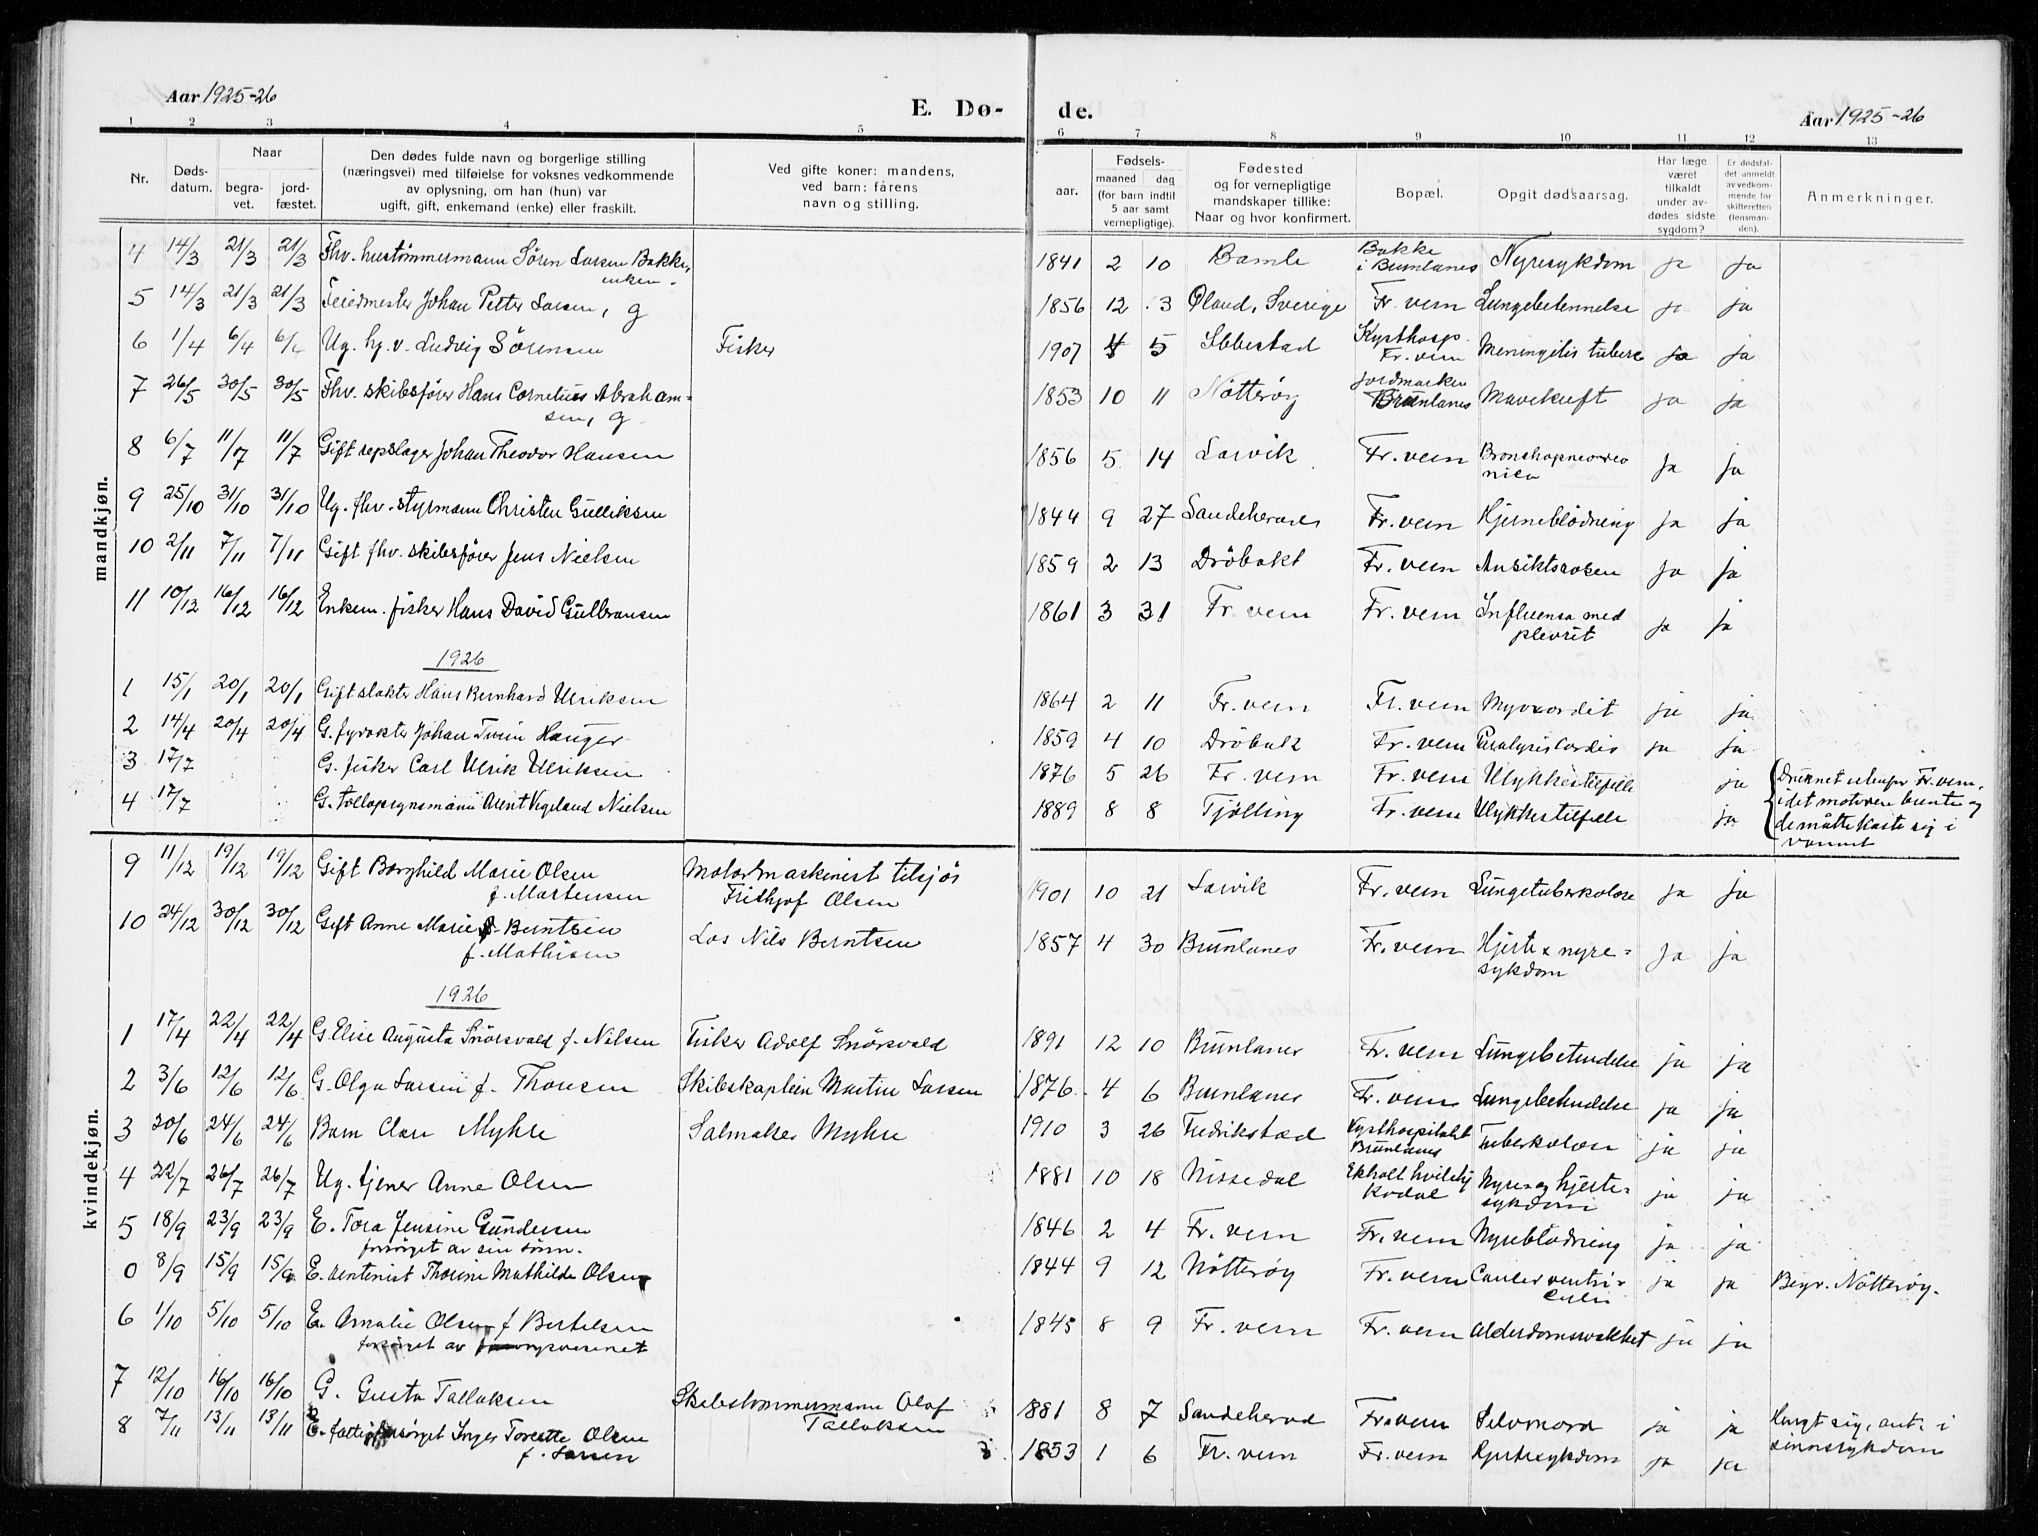 Aar 1925-26
E. Dø-
de.
Aar 1925-26
1 2 3 4 5 6 7 8 9 10 11 12 13
Nr.
Døds-
datum.
Naar
begra-
vet.
jord-
fæstet.
Den dødes fulde navn og borgerlige stilling
(næringsvei) med tilføielse for voksnes vedkommende
av oplysning, om han (hun) var
ugift, gift, enkemand (enke) eller fraskilt.
Ved gifte koner: mandens,
ved barn: fårens
navn og stilling.
Fødsels-
aar.
maaned dag
(for barn indtil
5 aar samt
vernepligtige).
Fødested
og for vernepligtige
mandskaper tillike:
Naar og hvor konfirmert.
Bopæl.
Opgit dødsaarsag.
Har læge
været
tilkaldt
under av-
dødes sidste
sygdom?
Er dødsfal-
det anmeldt
av vedkom-
mende for
skifteretten
(lensman-
den).
Anmerkninger.
mandkjøn.
4 14/3 21/3 21/3 Fhv. hustømmermann Søren Larsen Bakke, enkem. 1841 2 10 Bamle Bakke i Brunlanes Nyresykdom ja ja
5 14/3 21/3 21/3 Feiedmester Johan Petter Larsen, g 1856 12 3 Øland, Sverige Fr. vern Lungebetennelse ja ja
6 1/4 6/4 6/4 Ug. hg. v. Ludvig Sörensen Fisker 1907 4 5 Ibbestad Kysthosp. Fr. vern Meningitis tuberc ja ja
7 26/5 30/5 30/5 Fhv. skibsfører Hans Cornelius Abraham=
sen, g 1853 10 11 Nötteröy Jordmarken Brunlanes Mavekreft ja ja
8 6/7 11/7 11/7 Gift repslager Johan Theodor Hansen 1856 5 14 Larvik Fr. vern Bronchopneomo
nica ja ja
9 25/10 31/10 31/10 Ug. fhv. styrmann Christen Gulliksen 1844 9 27 Sandeherred Fr. vern Hjerneblödning ja ja
10 2/11 7/11 7/11 Gift fhv. skibsfører Jens Nielsen 1859 2 13 Dröbakt Fr. vern Ansiktsrosen ja ja
11 10/12 16/12 16/12 Enkem. fisker Hans David Gulbransen 1861 3 31 Fr. vern Fr. vern Influensa med
plevrit ja ja
1926
1 15/1 20/1 20/1 Gift slakter Hans Bernhard Ulriksen 1864 2 11 Fr. vern Fr. vern Myocordit ja ja
2 14/4 20/4 20/4 G. fyrvokter Johan Hauger 1859 4 10 Dröbak Fr. vern Paralysis Cordis ja ja
3 17/7 G. fisker Carl Ulrik Ulriksen 1876 5 26 Fr. vern Fr. vern Ulykkestilfelle ja Druknet utenfor Fr. vern,
4 17/7 G. tollopsynsmann Arent Vegeland Nielsen 1889 8 8 Tjölling Fr. vern Ulykkestilfelle ja idet motoren brente og
de måtte kaste sig i
vannet
kvindekjøn.
9 11/12 19/12 19/12 Gift Borghild Marie Olsen
f. Martensen Motormaskinist tilsjös
Frithjof Olsen 1901 10 21 Larvik Fr. vern Lungetuberkolose ja ja
10 24/12 30/12 30/12 Gift Anne Marie Berntsen
f. Mathisen Los Nils Berntsen 1857 4 30 Brunlanes Fr. vern Hjerte & nyre=
sykdom ja ja
1926
1 17/4 22/4 22/4 G. Elise Augusta Snörsvald f. Nilsen Fisker Adolf Snörsvald 1891 12 10 Brunlanes Fr. vern Lungebetendelse ja ja
2 3/6 12/6 12/6 G. Olga Larsen f. Thorsen Skibskaptein Martin Larsen 1876 4 6 Brunlanes Fr. vern Lungebetendelse ja ja
3 20/6 24/6 24/6 Barn Clare Myhre Salmaker Myhre 1910 3 26 Fredrikstad Kysthospitalet
Brunlanes Tuberkolose ja ja
4 22/7 26/7 26/7 Ug. tjener Anne Olsen 1881 10 18 Nissedal Ekholt hvilehj
Kodal Nyre- og hjerte-
sykdom ja ja
5 18/9 23/9 23/9 E. Tora Jensine Gundersen
forsørget av sin sønn. 1846 2 4 Fr. vern Fr. vern Nyreblödning ja ja
0 8/9 15/9 15/9 E. rentenist Thorine Mathilde Olsen 1844 9 12 Nötteröy Fr. vern Cancer ventri-
culi ja ja Begr. Nötteröy.
6 1/10 5/10 5/10 E. Amalie Olsen f Bertelsen
forsørget av forsorgsvesenet 1845 8 9 Fr. vern Fr. vern Alderdomssvakhet ja ja
7 12/10 16/10 16/10 G. Gusta Tallaksen Skibstömmermann Olaf
Tallaksen 1881 8 7 Sandeherad Fr. vern Selvmord ja ja Hengt sig, ant. i
sinnssykdom
8 7/11 13/11 13/11 E. Inger Torette Olsen
f. Larsen 1853 1 6 Fr. vern Fr. vern Hjertesykdom ja ja